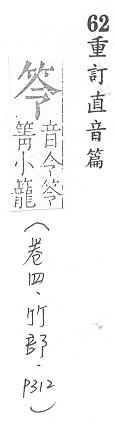 62重訂直音篇
笭
音令笭
箐小籠
(卷四、竹部、P312)